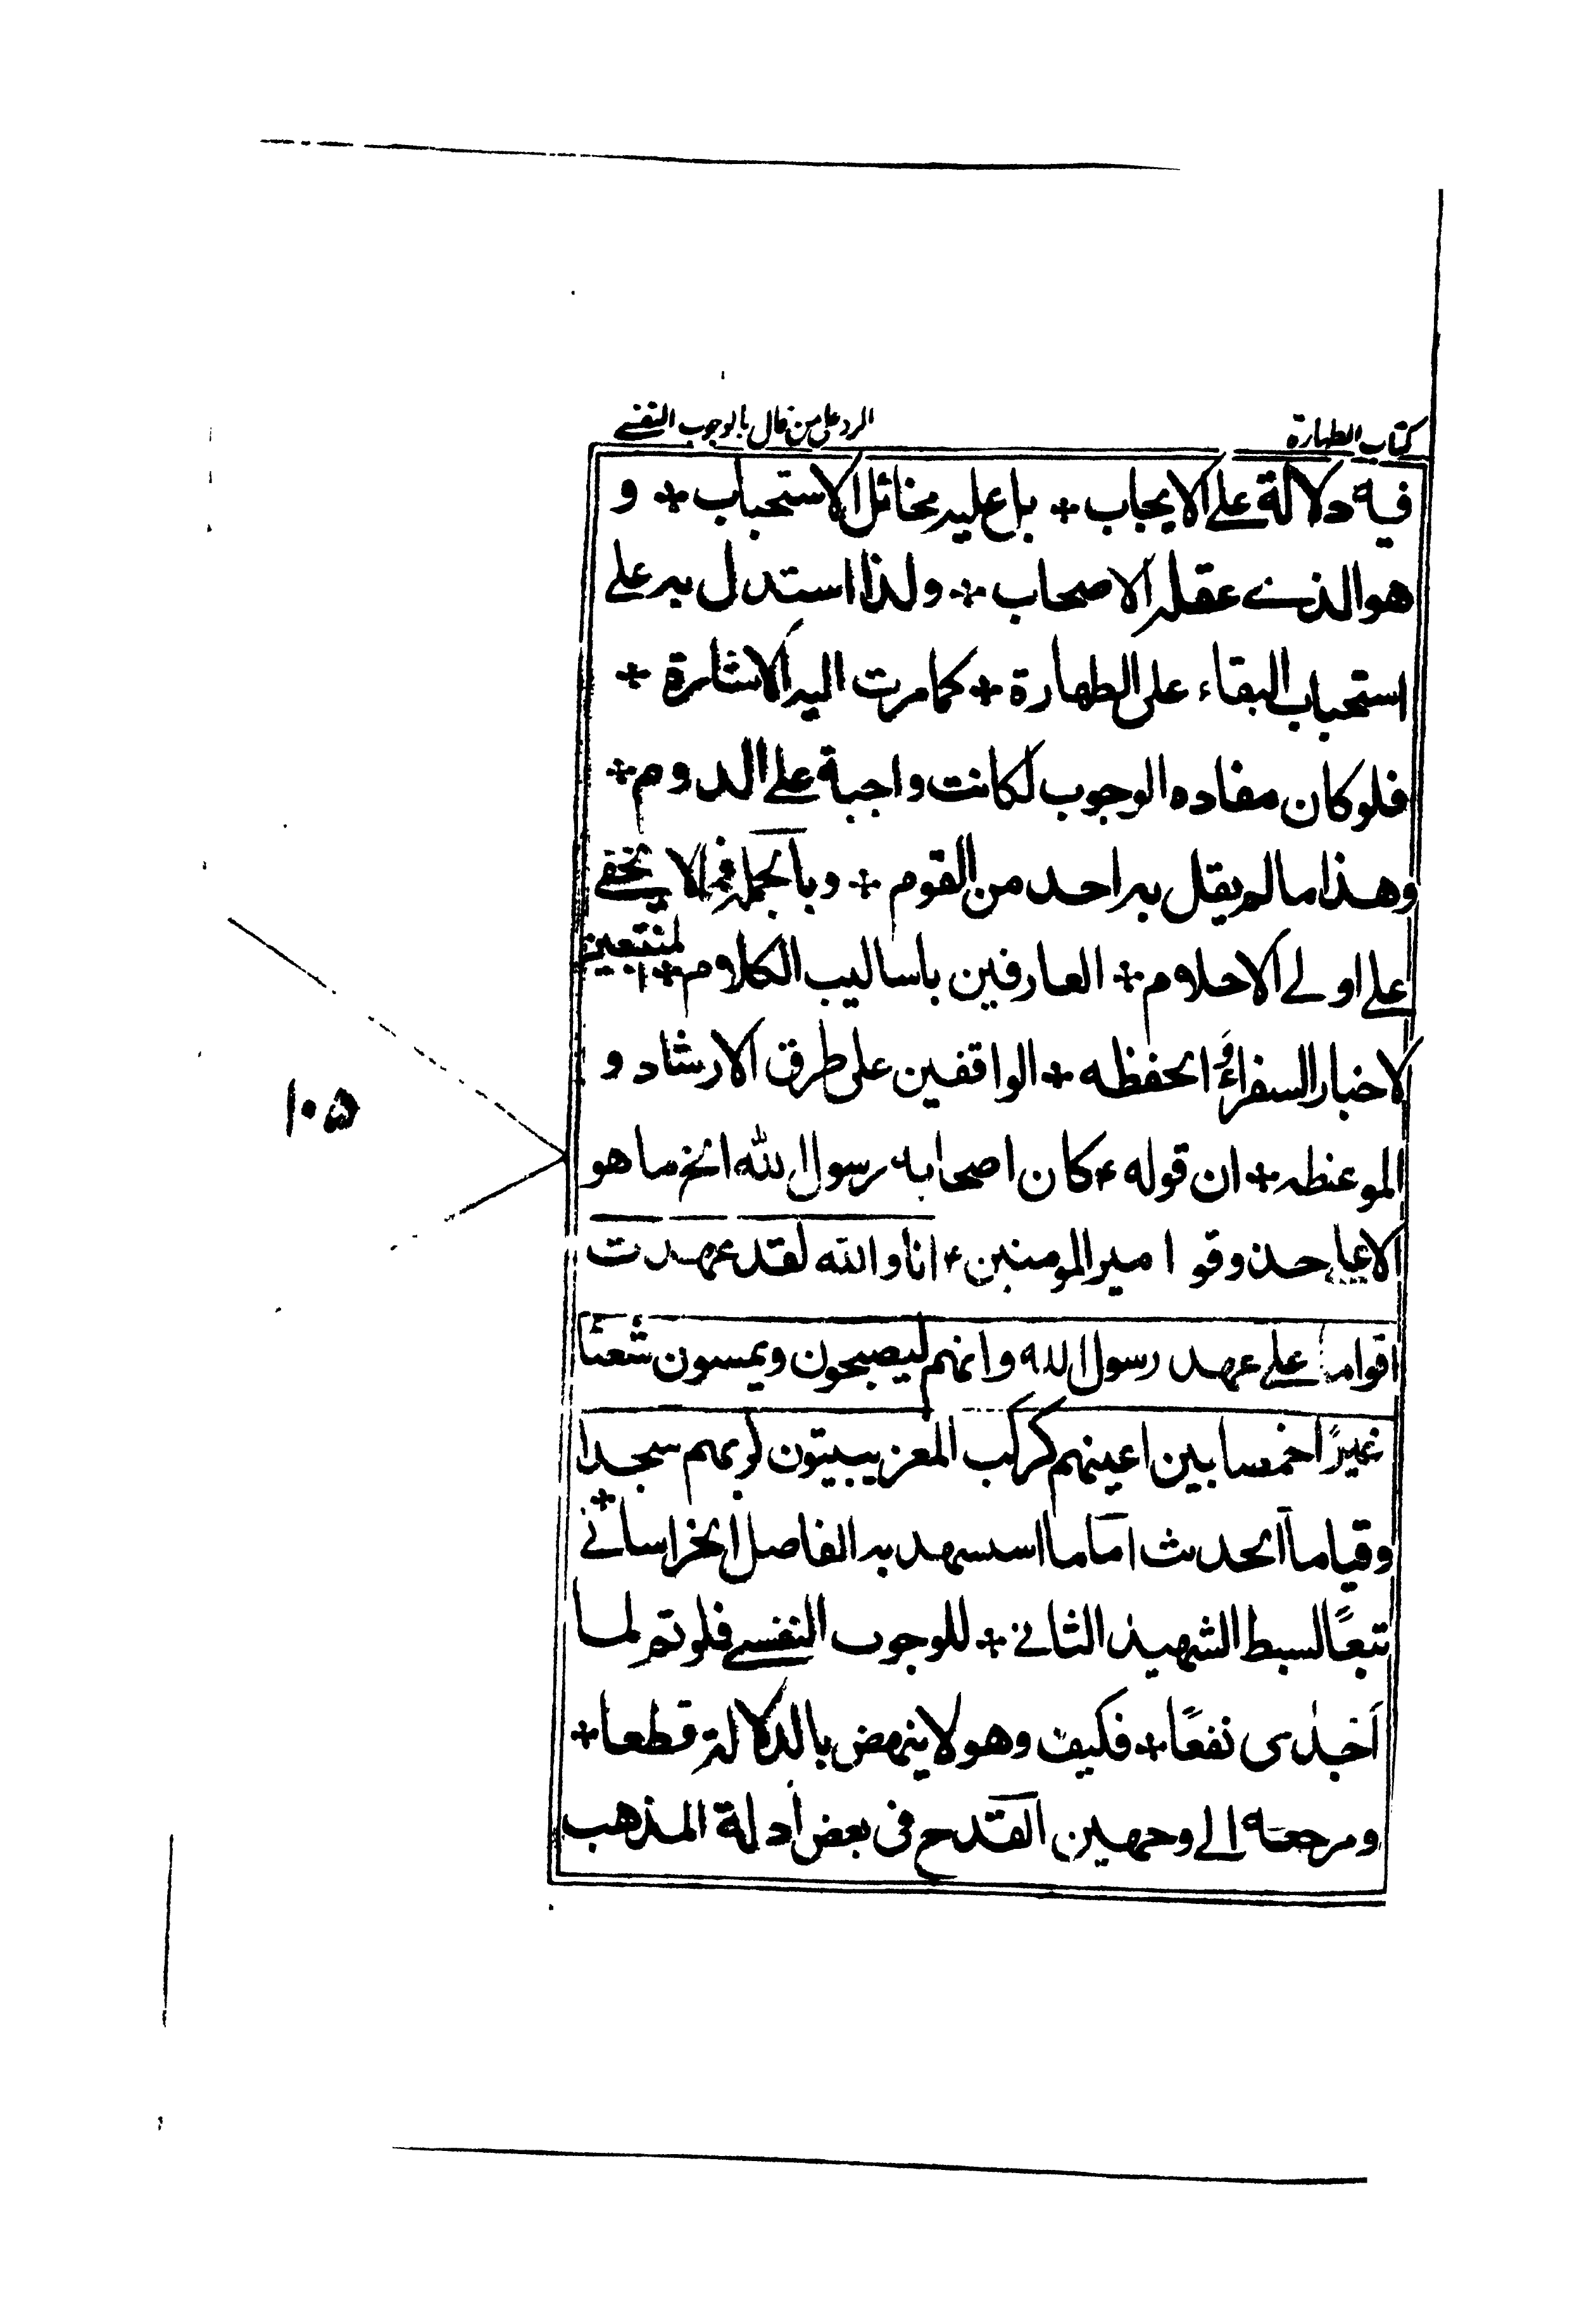 كتاب الطهارة
الرد على من قال بالوجوب النفسے
فيه دلالة علے الايجاب ÷ بل عليہ مخائل الاستحباب ÷ و
هو الذے عقلہ الاصحاب ÷ ولذا استدل بہ علے
استحباب البقاء على الطهارة ÷ كما مرت اليہ الاشارة ÷
فلو كان مفاده الوجوب لكانت واجبة علے الدوم ÷
وهذا ما لم يقل بہ احد من القوم ÷ وبالجملۃ فمما لا يخفے
علے اولے الاحلام ÷ العارفين باساليب الكلام ÷ المنتبعين
لاخبار السفراء و الحفظه ÷ الواقفين على طرق الارشاد و
الموعظہ ÷ ان قوله ع كان اصحابہ رسول الله الخ ما هو
الا عا حذو قو امير المومنين ع انا والله لقد عهدت
اقواما علے عهد رسول الله وانهم ليصبحون ويمسون شعثا
غبيرًا خمسا بين اعينهم كركب المعز يبيتون لربهم سجدا
وقياما الحديث اما ما استشهد بہ الفاضل الخراسانے ÷
تبعًا لسبط الشهيد الثانے ÷ للوجوب النفسے فلو تم لما
اجدى نفعًا ÷ فكيف وهو لا ينهض بالدلالۃ قطعا ÷
ومرجعه الے وجهين القدح فى بعض أدلة المذهب
١٠۵